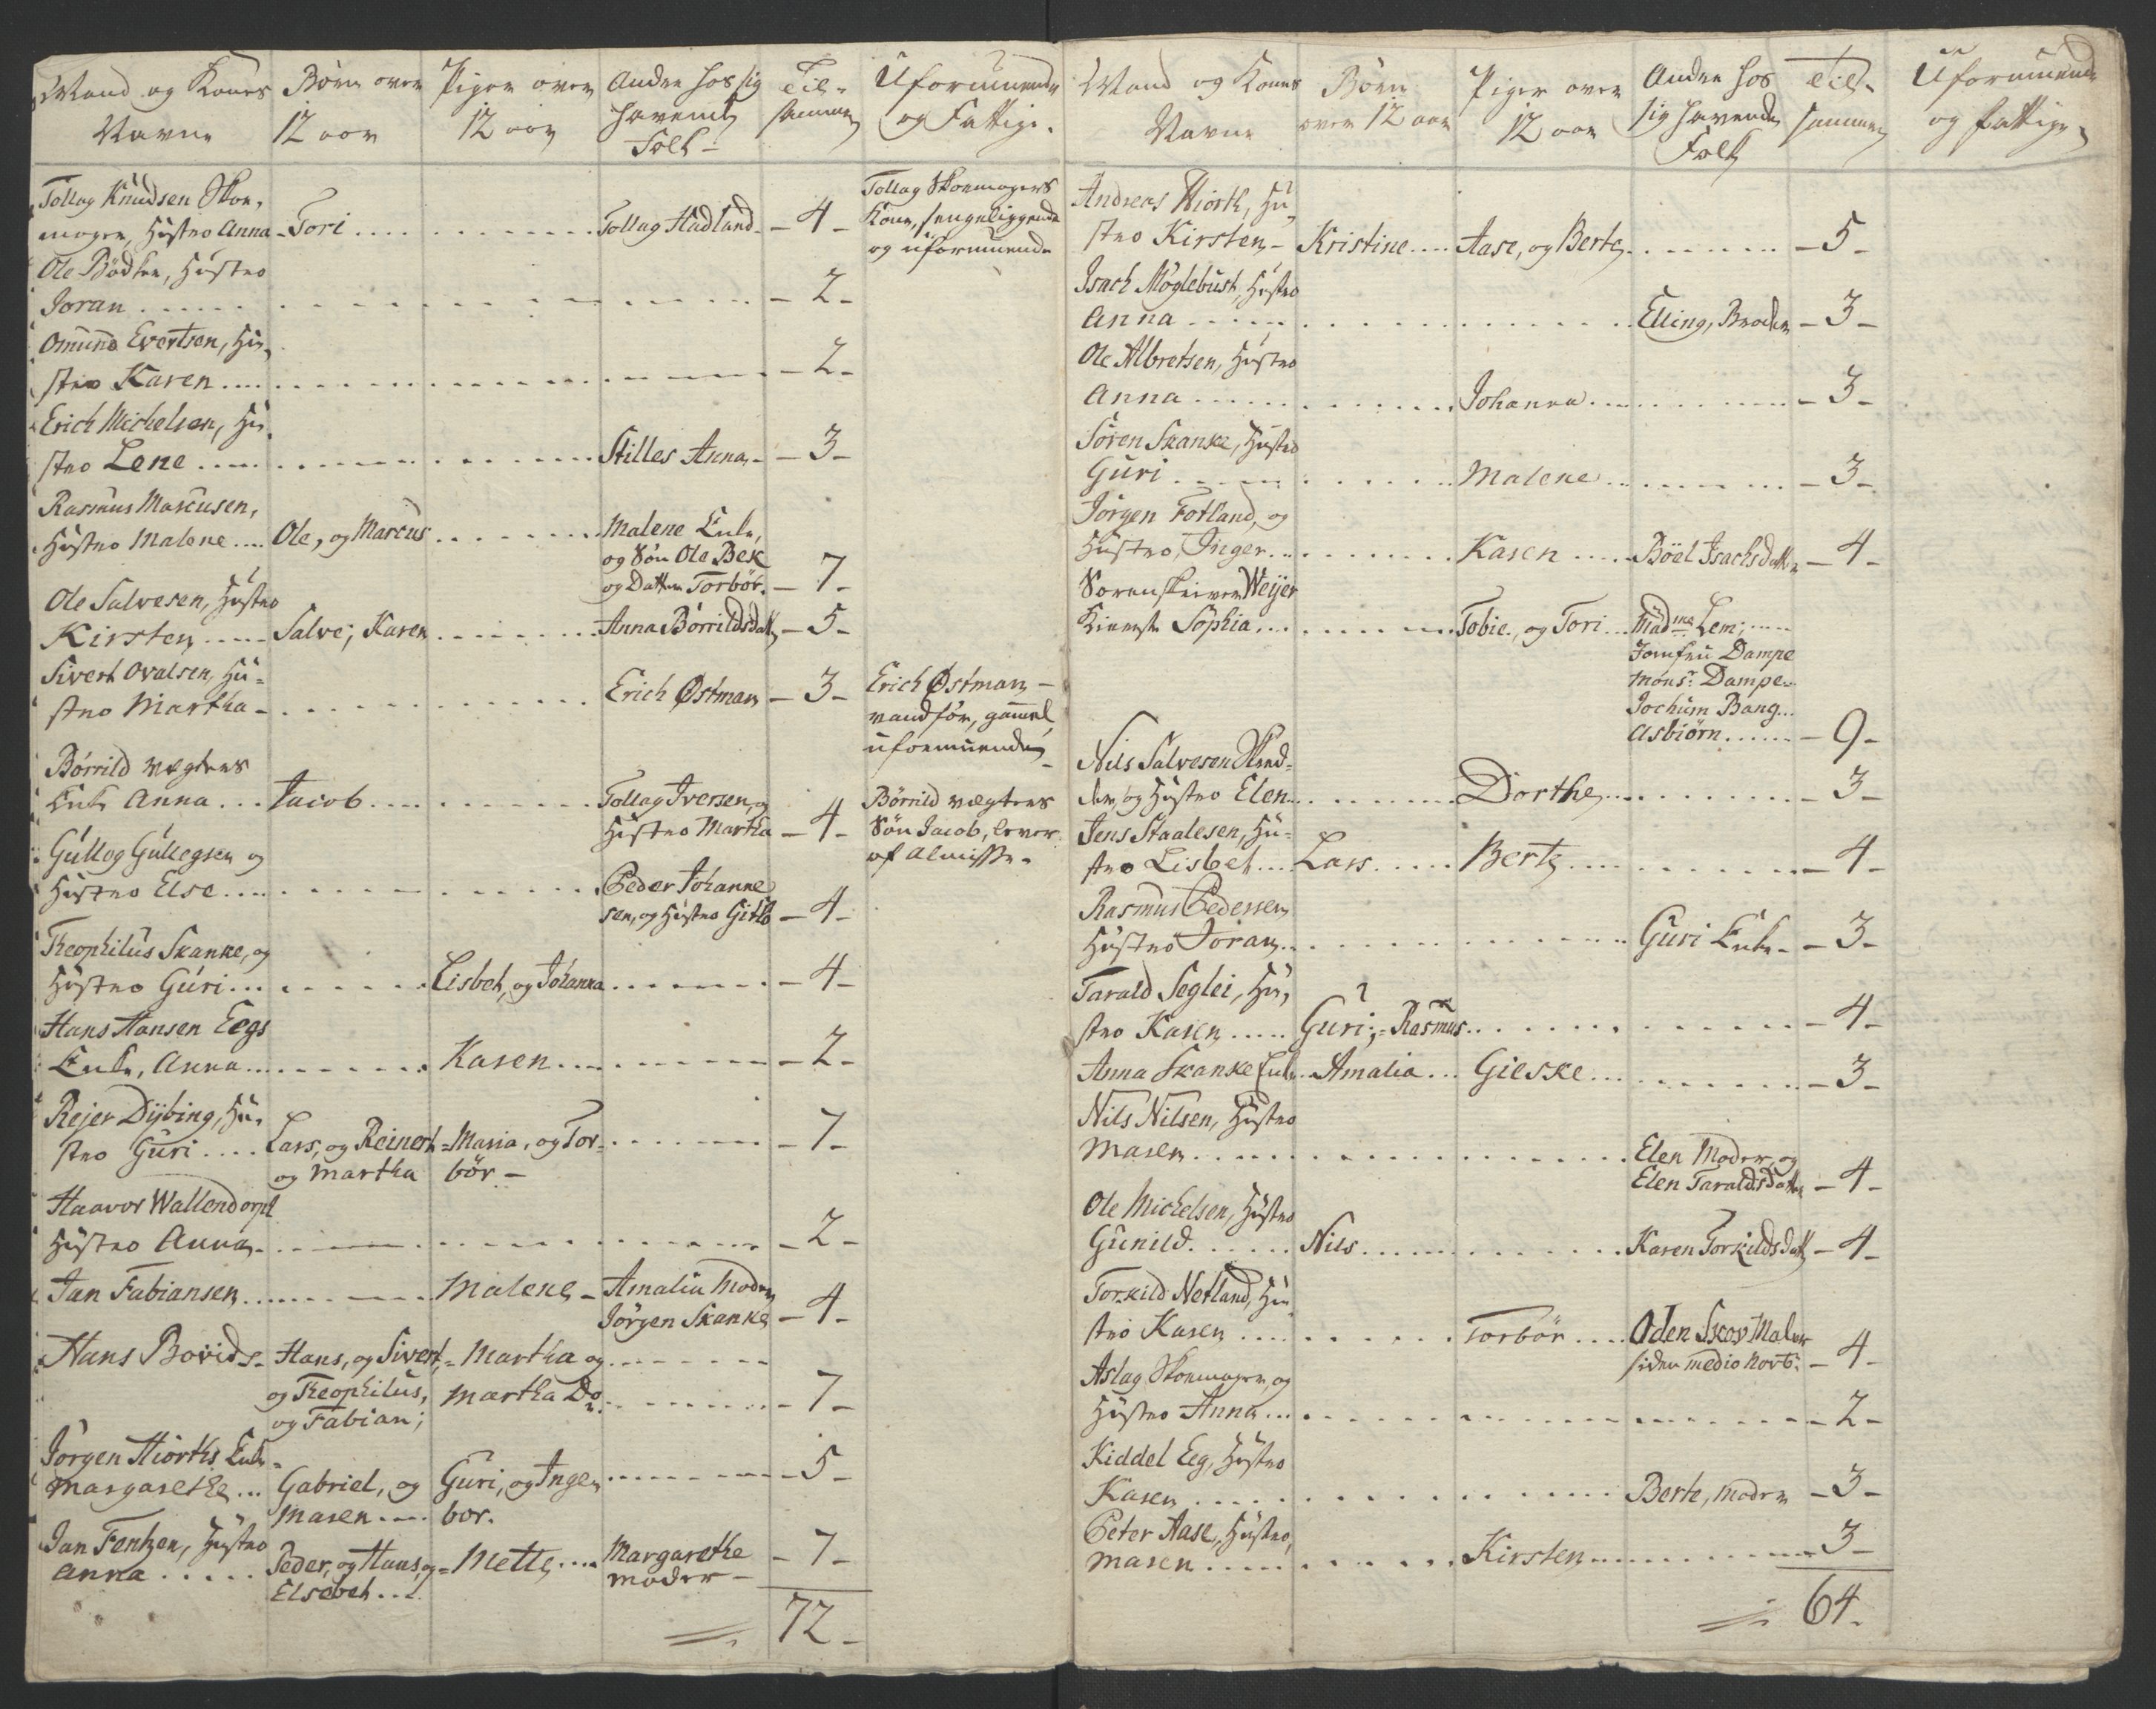 Mand og Kones Navne | Børn over 12 aar | Piger over 12 aar | Anden hos sig havende Folk | Til- sammen | Uformuende og Fattige.
Tollag Knudsen Skoe-
mager, Hustro Anna - Tori .... Tollag Hadland - 4 - Tollag Skoemagers Kone, sengeliggende og uformuende
Ole Bødker, Hustro
Joran .... - 2 -
Omund Evertsen, Hu-
stro Karen .... - 2 -
Erich Michelsen, Hu-
stro Lene .... Stilles Anna - - 3 -
Rasmus Marcusen,
Hustro Malene .... Ole, og Marcus .... Malene Enke,
og Søn Ole Bek
og Datter Torbør. - 7 -
Ole Salvesen, Hustro
Kirsten .... Salve; Karen .... Anna Børrildsdatt - 5 -
Sivert Ovalsen, Hu-
stro Martha - .... Erich Østman - 3 - Erich Østman -
vandfør, gammel,
uformuende -
Børrild Vegters
Enke Anna ... Jacob .... Tollag Iversen, og
Hustro Martha - 4 - Børrild Vegters
Søn Jacob, lever
af Almisse.
Gullog Gullegsen og
Hustro Else .... Peder Johanne
sen, og Hustro Gitlo - 4 -
Theophilus Skanke, og
Hustro Guri .... Lisbeh, og Johanna .... - 4 -
Hans Hansen Eegs
Enke, Anna .... Karen .... - 2 -
Rejer Dybing, Hu-
stro Guri .... Lars, og Reinert = Maria, og Tor- .... - 7 -
og Martha bør. -
Haavor Wallendorph
Hustro Anna - .... - 2 -
Jan Fabiansen .... Malene - Amalia Moder
Jørgen Skanke - 4 -
Hans Bovids - Hans, og Sivert, = Martha og ....
og Theophilus, Martha Do .... - 7 -
og Fabian;
Jørgen Hiorths Enke -
Margarethe ... Gabriel, og Guri, og Inge .... - 5 -
Maren .... bor.
Jan Fentzen, Hustro
Anna ..... Peder, og Hans, og = Mette .... Margarethe - 7 -
Elsebeh .... Moder -
72 -
Mand og Kones Navne | Børn over 12 aar | Piger over 12 aar | Anden hos sig havende Folk | Til- sammen | Uformuende og fattige
Andreas Hiorth, Hu-
stro Kirsten - Kristine .... Aase, og Berte .... - 5 -
Isach Møglebust, Hustro
Anna .... Elling, Broder - 3 -
Ole Albretsen, Hustro
Anna .... Johanna .... - 3 -
Søren Skanke, Hustro
Guri .... Malene .... - 3 -
Jørgen Fotland, og
Hustro, Inger .... Karen .... Böel Isachsdatter - 4 -
Sorenskriver Weyer
Kiereste Sophia .... Tobie, og Tori ... Madme Lem; ....
Jomfru Dampe
Monsr. Dampe ..
Jochum Bang ...
Asbiørn ..... - 9 -
Nils Salvesen
og Hustro Elen .... Dorthe .... - 3 -
Jens Staalesen, Hu-
stro Lisbeh .... Lars .... Berte .... - 4 -
Rasmus Pedersen
Hustro Joran .... Guri Enke - - 3 -
Tarald Seglei, Hu-
stro Karen .... Guri; = Rasmus .... - 4 -
Anna Skanke Enke .. Amalia ... Gieske .... - 3 -
Nils Nilsen, Hustro
Maren .... Elen Moder, og
Elen Taraldsdatter - 4 -
Ole Michelsen, Hustro
Gunild .... Nils .... Karen Torkildsdatt - 4 -
Torkild Netland, Hu
stro Karen .... Torbør .... Oden Skov Maler
siden medio Novb. - 4 -
Aslag Skoemager, og
Hustro Anna .... - 2 -
Kiddel Eeg, Hustro
Karen .... Berte, Moder - 3 -
Peter Aase, Hustro,
Maren .... Kirsten .... 3 -
64 -